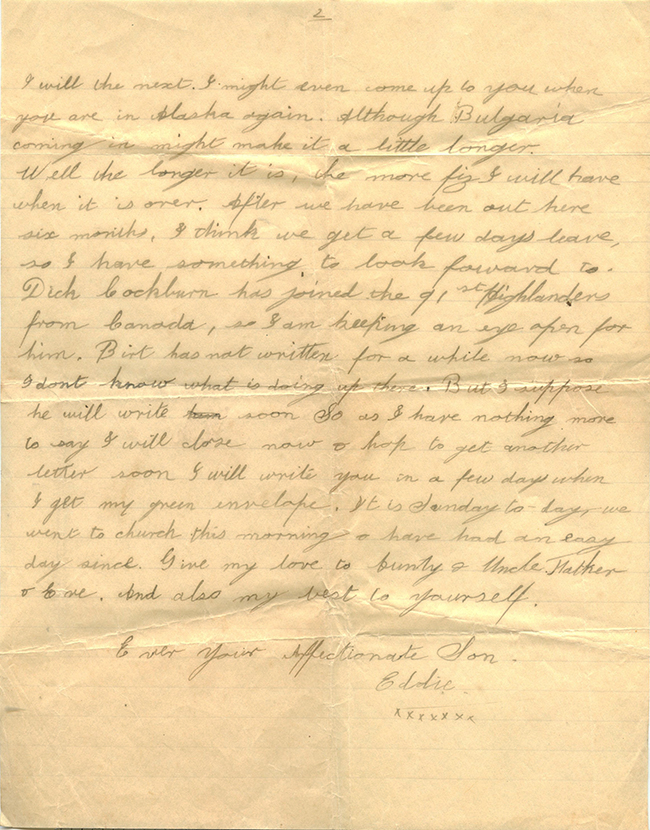 2
I will the next. I might even come up to you when
you are in Alaska again. Although Bulgaria
coming in might make it a little longer.
Well the longer it is, the more fiz I will have
when it is over. After we have been out here
six months, I think we get a few days leave,
so I have something to look foward to.
Dick Cockburn has joined the 91st Highlanders
from Canada, so I am keeping an eye open for
him. Birt has not written for a while now so
I dont know what is doing up there. But I suppose
he will write soon So as I have nothing more
to say I will close now & hop to get another
letter soon I will write you in a few days when
I get my green envelope. It is Sunday to-day, we
went to church this morning & have had an easy
day since. Give my love to Aunty & Uncle, Father
& Eve. And also my best to yourself.
Ever Your Affectionate Son.
Eddie.
xxxxxxx